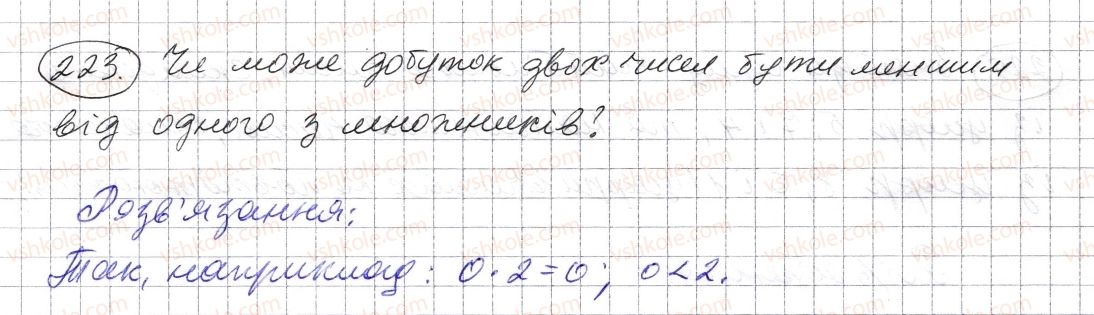 223. Чи може добуток двох чисел бути меншим
від одного з множників?
Розв'язання:
Так, наприклад: 0·2=0; 0<2.